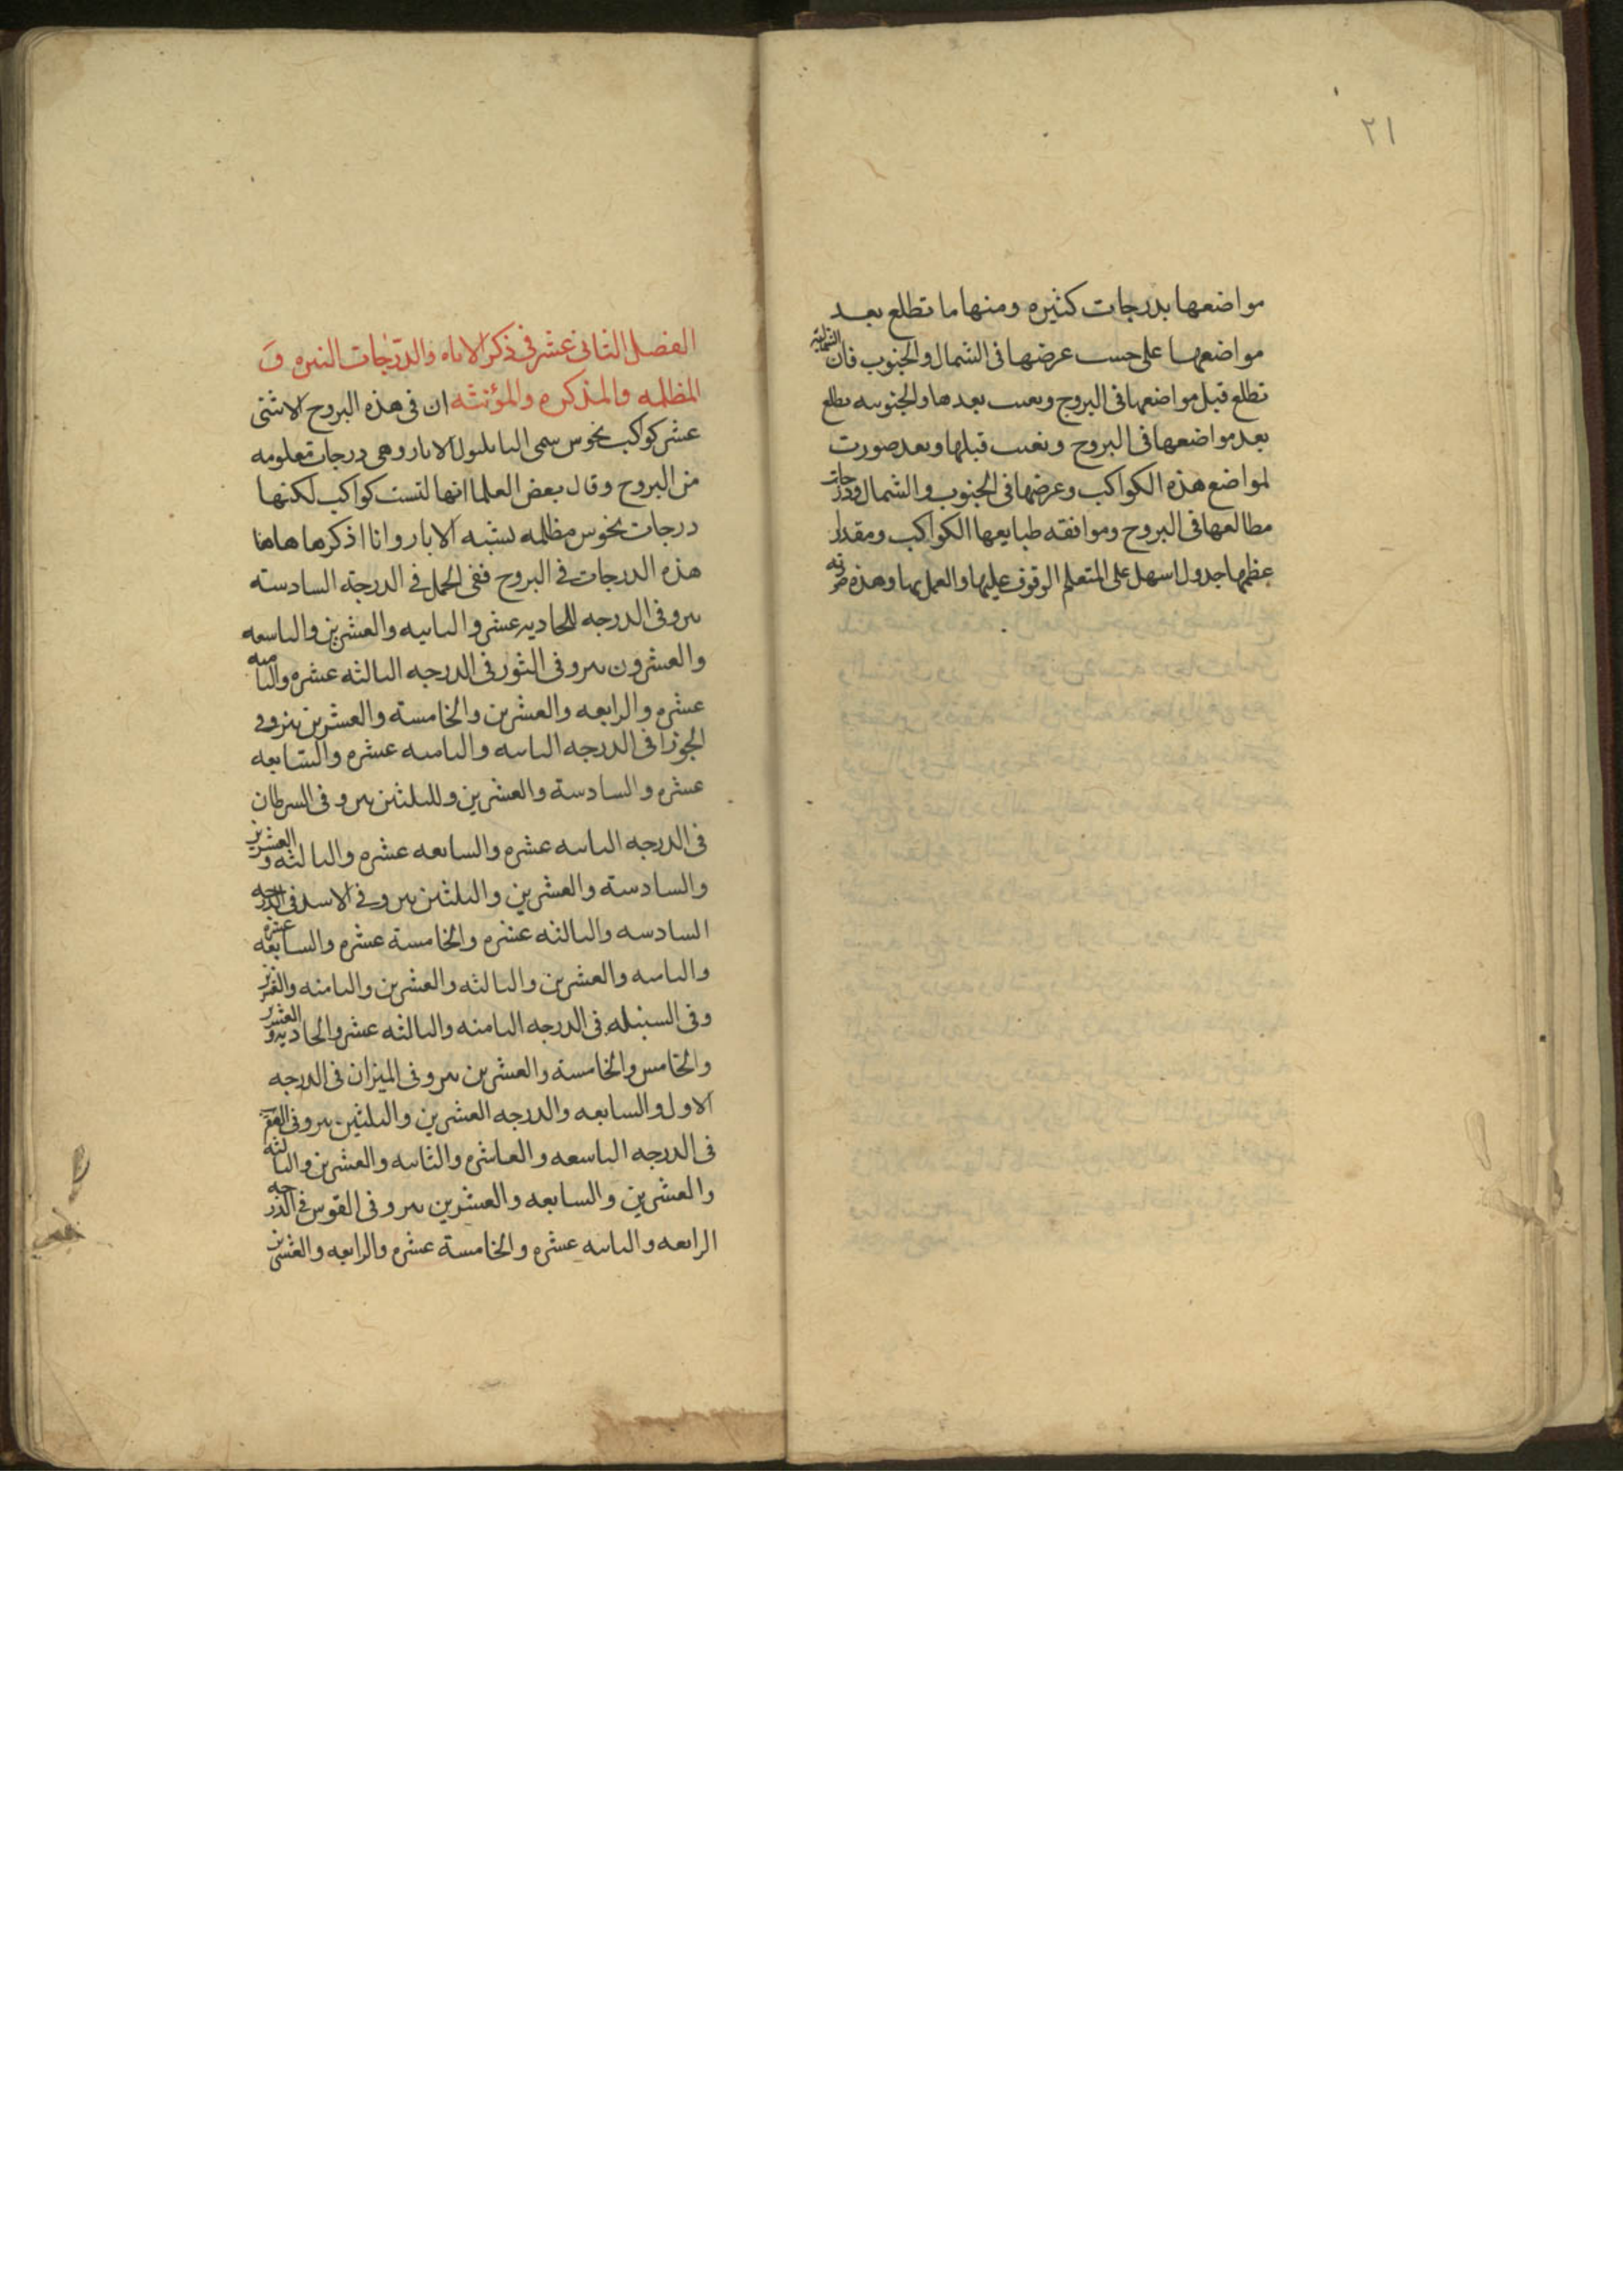 ٢١
مواضعها بدرجات كثيره ومنها ما تطلع بعد
مواضعها على حسب عرضها فى الشمال والجنوب فان الشماليه
تطلع قبل مواضعها فى البروج وبعىب بعدها والجنوبيه ىطلع
بعد مواضعها فى البروج وتغىب قبلها وىعد صورت
لمواضع هذه الكواكب وعرضها فى الجنوب والشمال ودرجات
مطالعها فى البروج وموافقه طبايعها الكواكب ومقدار
عظمها جدول اسهل على المتعلم الوقوف عليها والعمل بها وهذه
الفصل الثانى عشر فى ذكر الاباه والدرجات النيره و
المظلمه والمذكره والمؤنثه ان فى هذه البروج الاثنى
عشر كواكب نحوس سمى الىابليون الابار وهى درجات معلومه
من البروج وقال بعض العلما انها ليست كواكب لكنها
درجات نحوس مظلمه يشبه الابار وانا اذكرها هاهنا
هذه الدرجات فى البروج ففى الحمل فى الدرجة السادسته
ىىر وفى الدرجه الحاديه عشر والثانيه والعشرين والتاسعه
والعشرون ىىر وفى الثور فى الدرجه الثالثه عشره والثامنه
عشره والرابعه والعشرين والخامسة والعشرين ىىر وفى
الجوزا فى الدرجه الثانيه والثانيه عشره والسابعه
عشره والسادسة والعشرين والثلثىن ىىر وفى السرطان
فى الدرجه الثانيه عشره والسابعه عشره والثالثه والعشرين
والسادسته والعشرين والثلثىن ىىر وفى الاسد فى الدرجه
السادسه والثالثه عشره والخامسة عشره والسابعه عشره
والثانيه والعشرين والثالثه والعشرين والثامنه والعشرين
وفى السنبله فى الدرجه الثامنه والثالثه عشر والحاديه والعشرين
والخامس والخامسة والعشرين ىىر وفى الميزان فى الدرجه
الاول والسابعه والدرجه العشرين والثلثين ىىر وفى العقرب
فى الدرجه التاسعه والعاشره والثانيه والعشرين والثالثه
والعشرين والسابعه والعشرين ىىر وفى القوس فى الدرجه
الرابعه والثانيه عشره والخامسة عشره والرابعه والعشرين